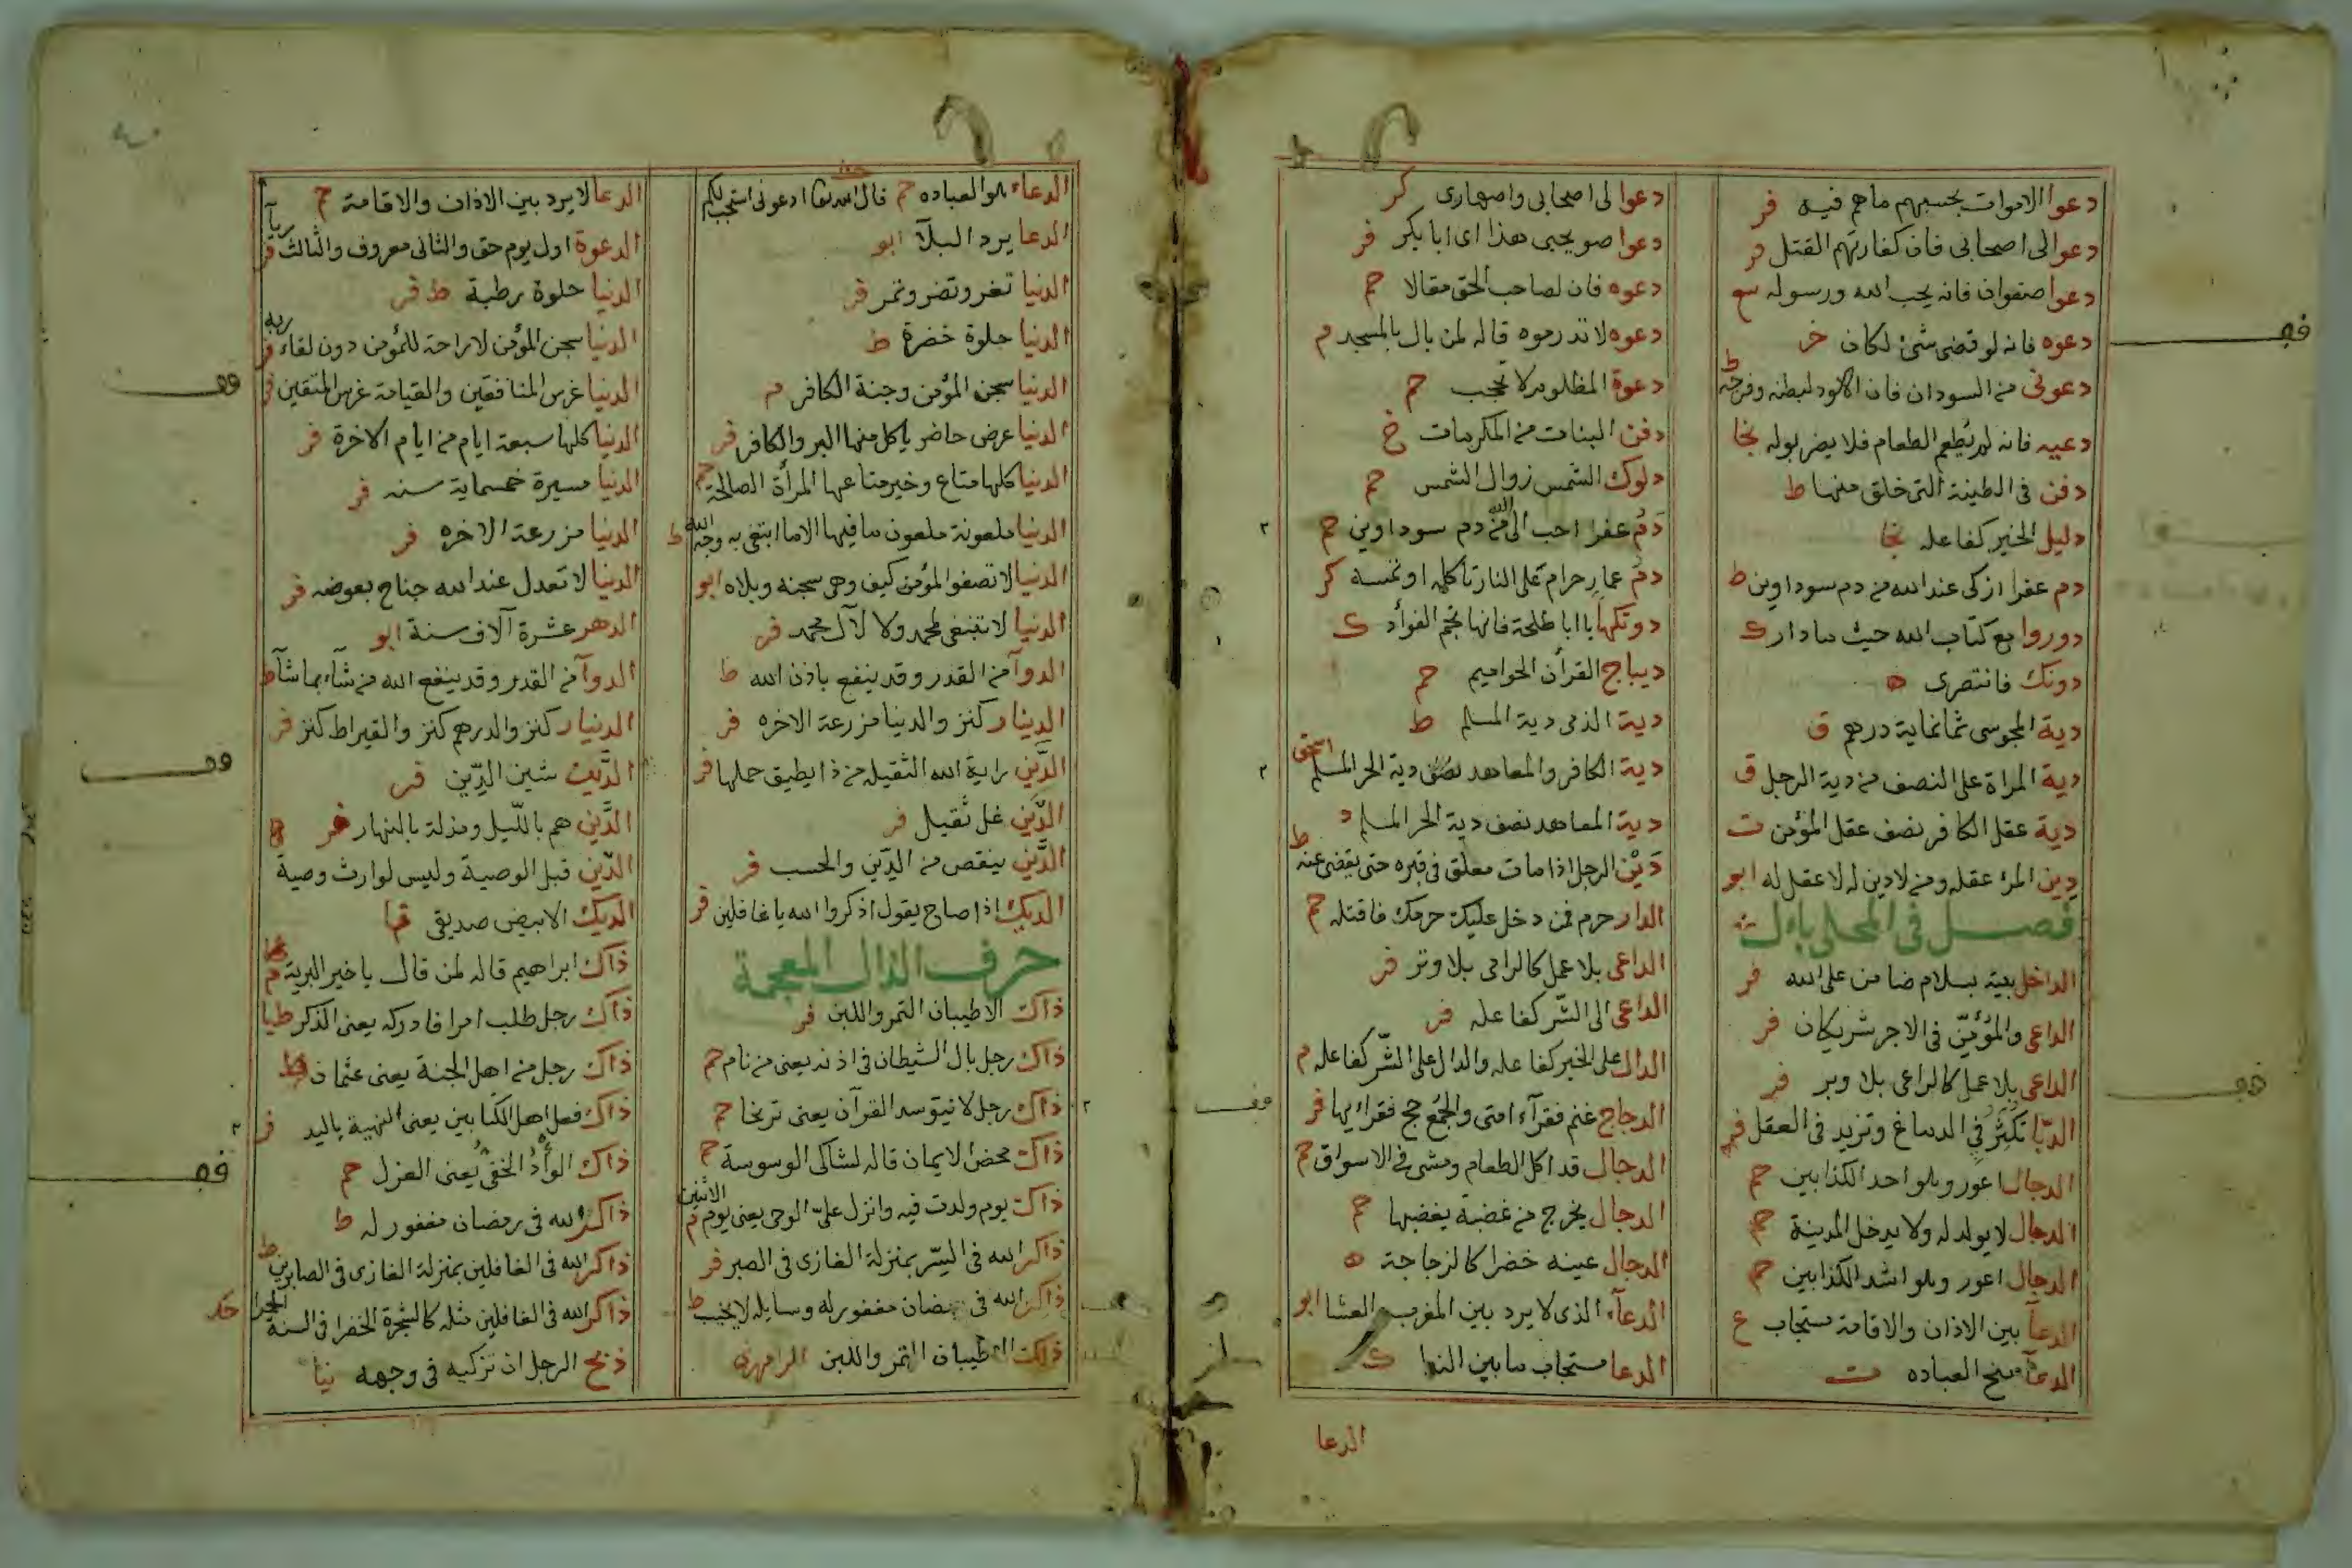 دعوا الاموات بحسبهم ماهم فيه فر
دعوا الى اصحابى فان كفارتهم القتل فر
دعوا صفوان فانه يحب الله ورسوله سع
دعوه فانه لو قضى شئ لكان خر
دعونى من السودان فان الاسود لبطنه وفرجه ط
دعيه فانه لم يطعم الطعام فلا يضر بوله نخا
دفن فى الطينة التى خلق منها ط
دليل الخير كفاعله نخا
دم عفرا ازكى عند الله من دم سوداوين ط
دوروا مع كتاب الله حيث ما دار ك
دونك فانتصرى ه
دية المجوسى ثمانماية درهم ق
دية المراة على النصف من دية الرجل ق
دية عقل الكافر نصف عقل المؤمن ت
دين المرء عقله ومن لا دين له لا عقل له ابو
فصل فى المحلى باءل منه
الداخل بيته بسلام ضامن على الله فر
الداعى والمؤمّن فى الاجر شريكان فر
الداعى بلا عمل كالراعى بلا وبر فر
الدبّا تكثر فى الدماغ وتزيد فى العقل فر
الدجال اعور وهو احد الكذابين حم
الدجال لا يولد له ولا يدخل المدينة حم
الدجال اعور وهو اشد الكذابين حم
الدعآ بين الاذان والاقامة مستجاب ع
الدعآ مخ العباده ت
دعوا لى اصحابى واصهارى كر
دعوا صويحبى هذا اى ابا بكر فر
دعوه فان لصاحب الحق مقالا حم
دعوه لا تدرموه قاله لمن بال بالمسجد م
دعوة المظلوم لا تحجب حم
دفن البنات من المكرمات خ
دلوك الشمس زوال الشمس حم
دم عفرا احب الى الله من دم سوداوين حم
دم عمار حرام على النار تاكله او تمسه كر
دونكها يا ابا طلحة فانها تجم الفوأد ك
ديباج القرأن الحواميم حم
دية الذمى دية المسلم ط
دية الكافر والمعاهد نصف دية الحر المسلم اسحق
دية المعاهد نصف دية الحر المسلم د
دَيْن الرجل اذا مات معلق فى قبره حتى يقضى عنه ط
الدار حرم فمن دخل عليك حرمك فاقتله حم
الداعى بلا عمل كالرامى بلا وتر فر
الداعى الى الشر كفاعله فر
الدال على الخير كفاعله والدال على الشر كفاعله م
الدجاج غنم فقرآء امتى والجمع حج فقرايها فر
الدجال قد اكل الطعام ومشى فى الاسواق حم
الدجال يخرج من غضبة يغضبها حم
الدجال عينه خضرا كالزجاجة ه
الدعآء الذى لا يرد بين المغرب العشا ابو
الدعا مستجاب ما بين الندا ك
الدعا
الدعاء هو العباده حم قال الله تعا ادعونى استجب لكم
الدعا يرد البلآ ابو
الدنيا تغر وتضر وتمر فر
الدنيا حلوة خضرة ط
الدنيا سجن المؤمن وجنة الكافر م
الدنيا عرض حاضر ياكل منها البر والكافر فر
الدنيا كلها متاع وخير متاعها المرأة الصالحة حم
الدنيا ملعونة ملعون ما فيها الا ما ابتغى به وجه الله ط
الدنيا لا تصفو المؤمن كيف وهى سجنه وبلاه ابو
الدنيا لا تنبغى لمحمد ولا لآل محمد فر
الدوآ من القدر وقد ينفع باذن الله ط
الدينار كنز والدنيا مزرعة الاخره فر
الدَّين راية الله الثقيله من ذا يطيق حملها فر
الدَّين غل ثقيل فر
الدَّين ينقص من الدِّين والحسب فر
الديك اذا صاح يقول اذكروا الله يا غافلين فر
حرف الذال المعجمة
ذاك الاطيبان التمر واللبن فر
ذاك رجل بال الشيطان فى اذنه يعنى من نام حم
ذاك رجل لا يتوسد القرآن يعنى حم
ذاك محض الايمان قاله لشاكى الوسوسة حم
ذاك يوم ولدت فيه وانزل علىّ الوحى يعنى يوم الاثنين م
ذاكر الله فى السّر بمنزلة الغازى فى الصبر فر
ذاكر الله فى رمضان مغفور له وسايله لا يخيب ط
ذلك الاطيبان التمر واللبن الرامهرى
الدعا لا يرد بين الاذان والاقامة حم
الدعوة اول يوم حق والثانى معروف والثالث ريآ فر
الدنيا حلوة رطبة ط فر
الدنيا سجن المؤمن لا راحة للمؤمن دون لقاء ربه فر
الدنيا عرس المنافقين والقيامة عرس المتقين فر
الدنيا كلها سبعة ايام من ايام الاخرة فر
الدنيا مسيرة خمسماية سنه فر
الدنيا مزرعة الاخره فر
الدنيا لا تعدل عند الله جناح بعوضه فر
الدهر عشرة آلاف سنة ابو
الدوآ من القدر وقد ينفع الله من شآء بما شآ ط
الدينار كنز والدرهم كنز والقيراط كنز فر
الدَّين شين الدِّين فر
الدَّين هم بالليل ومذلة بالنهار فر
الدَّين قبل الوصية وليس لوارث وصية
الديك الابيض صديقى قا
ذاك ابراهيم قاله لمن قال يا خير البرية م
ذاك رجل طلب امرا فادركه يعنى الذكر طيا
ذاك رجل من اهل الجنة يعنى عثمان قط
ذاك فعل اهل الكتابين يعنى باليد فر
ذاك الوأد الخفى يعنى العزل حم
ذاكر الله فى رمضان مغفور له ط
ذاكر الله فى الغافلين بمنزلة الغازى فى الصابرين ط
ذاكر الله فى الغافلين مثله كالشجرة الخضرا فى السنة
ذبح الرجل ان تزكيه فى وجهه نيا